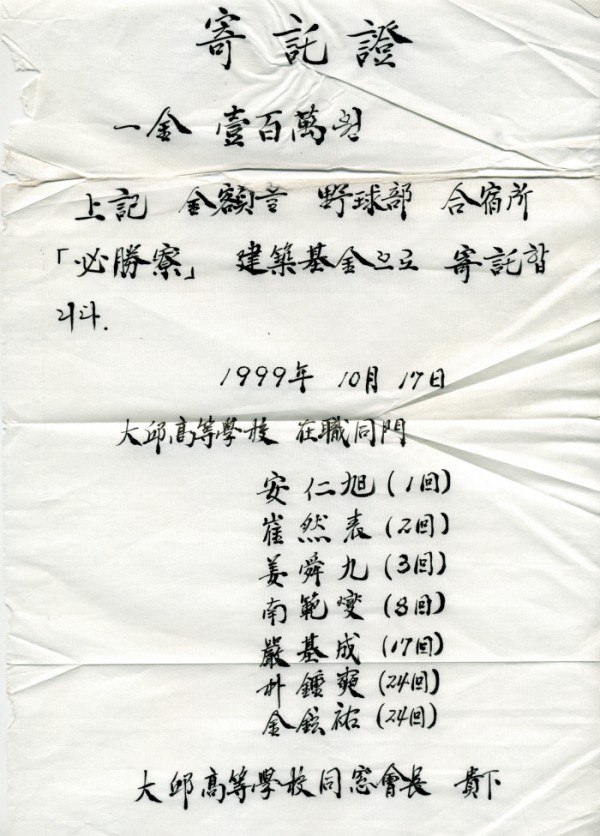 寄託證
一金 壹百萬원
上記 金額을 野球部 合宿所
「必勝寮」 建築基金으로 寄託합
니다.
1999年 10月 17日
大邱高等學校 在職同門
安仁旭(1回)
崔然表(2回)
姜舜九(3回)
南範燮(8回)
嚴基成(17回)
朴鍾奭(24回)
金鉉祐(24回)
大邱高等學校同窓會長 貴下